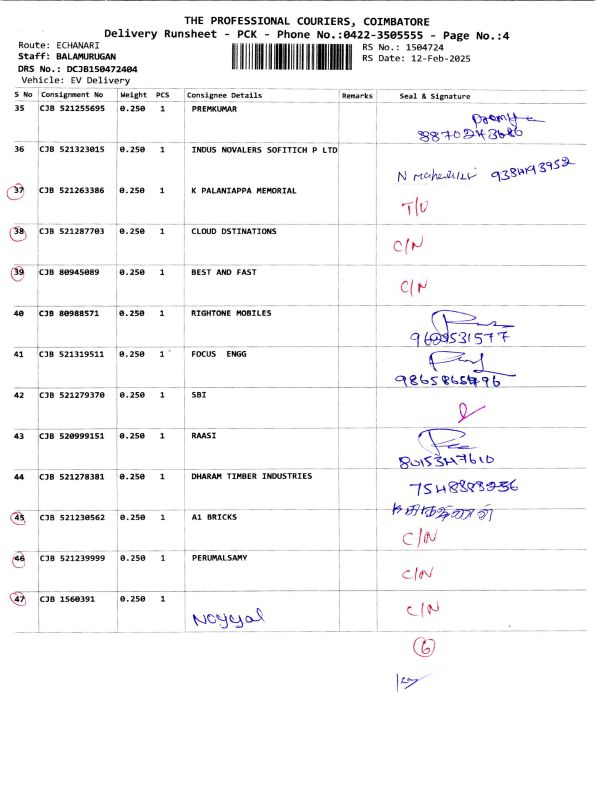 THE PROFESSIONAL COURIERS, COIMBATORE
Delivery Runsheet - PCK - Phone No.:0422-3505555 - Page No.:4
Route: ECHANARI RS No.: 1504724
Staff: BALAMURUGAN RS Date: 12-Feb-2025
DRS No.: DCJB150472404
Vehicle: EV Delivery
S No Consignment No Weight PCS Consignee Details Remarks Seal & Signature
35 CJB 521255695 0.250 1 PREMKUMAR
36 CJB 521323015 0.250 1 INDUS NOVALERS SOFITECH P LTD
9384193952
37 CJB 521263386 0.250 1 K PALANIAPPA MEMORIAL
T/U
38 CJB 521287703 0.250 1 CLOUD DSTINATIONS
C/N
39 CJB 80945089 0.250 1 BEST AND FAST
C/N
40 CJB 80988571 0.250 1 RIGHTONE MOBILES
41 CJB 521319511 0.250 1 FOCUS ENGG
42 CJB 521279370 0.250 1 SBI
43 CJB 520999151 0.250 1 RAASI
8015347610
44 CJB 521278381 0.250 1 DHARAM TIMBER INDUSTRIES
45 CJB 521230562 0.250 1 A1 BRICKS
C/N
46 CJB 521239999 0.250 1 PERUMALSAMY
C/N
47 CJB 1560391 0.250 1
Noyyal C/N
6